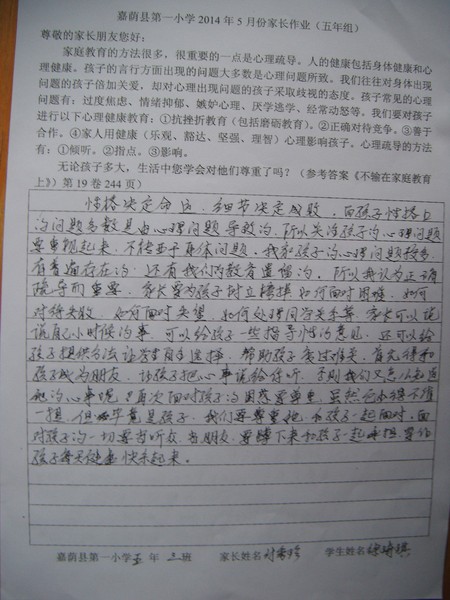 嘉荫县第一小学2014年5月份家长作业（五年组）
尊敬的家长朋友您好：
家庭教育的方法很多，很重要的一点是心理疏导。人的健康包括身体健康和心
理健康。孩子的言行方面出现的问题大多数是心理问题所致。我们往往对身体出现
问题的孩子倍加关爱，却对心理出现问题的孩子采取歧视的态度。孩子常见的心理
问题有：过度焦虑、情绪抑郁、嫉妒心理、厌学逃学、经常动怒等。我们要对孩子
进行以下心理健康教育：①抗挫折教育（包括磨砺教育）。②正确对待竞争。③善于
合作。④家人用健康（乐观、豁达、坚强、理智）心理影响孩子。心理疏导的方法
有：①倾听。②指点。③影响。
无论孩子多大，生活中您学会对他们尊重了吗？（参考答案《不输在家庭教育
上》）第19卷244页）
性格决定命运，细节决定成败，而孩子性格上
的问题多数是由心理问题导致的，所以关注孩子的心理问题
要重视起来，不能亚于身体问题，我和孩子的心理问题
有普遍存在的，还有我们的教育遗留的，所以我认为正确
疏导尤重要，家长要为孩子树立榜样，如何面对困难，如何
对待失败，如何面对失望，如何处理同学关系等，家长可以说
说自己小时候的事，可以给孩子一些指导性的意见，还可以给
孩子提供方法让学习自主选择，帮助孩子度过难关，首先得和
孩子成为朋友，让孩子把心事说给你听，否则我们又怎么知道
他的心事呢？再次面对孩子的困惑要尊重，虽然你不得不值
一提，但毕竟是孩子，我们要尊重他，和孩子一起面对，面
对孩子的一切要当听众，当朋友，要蹲下来和孩子一起，要让
孩子每天健康快乐起来。
嘉荫县第一小学五年三班 家长姓名 学生姓名